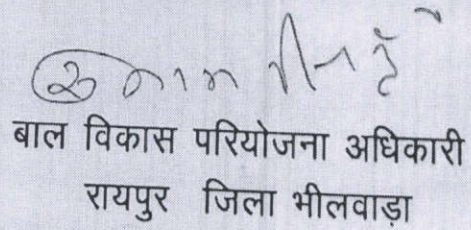 बाल विकास परियोजना अधिकारी
रायपुर जिला भीलवाड़ा